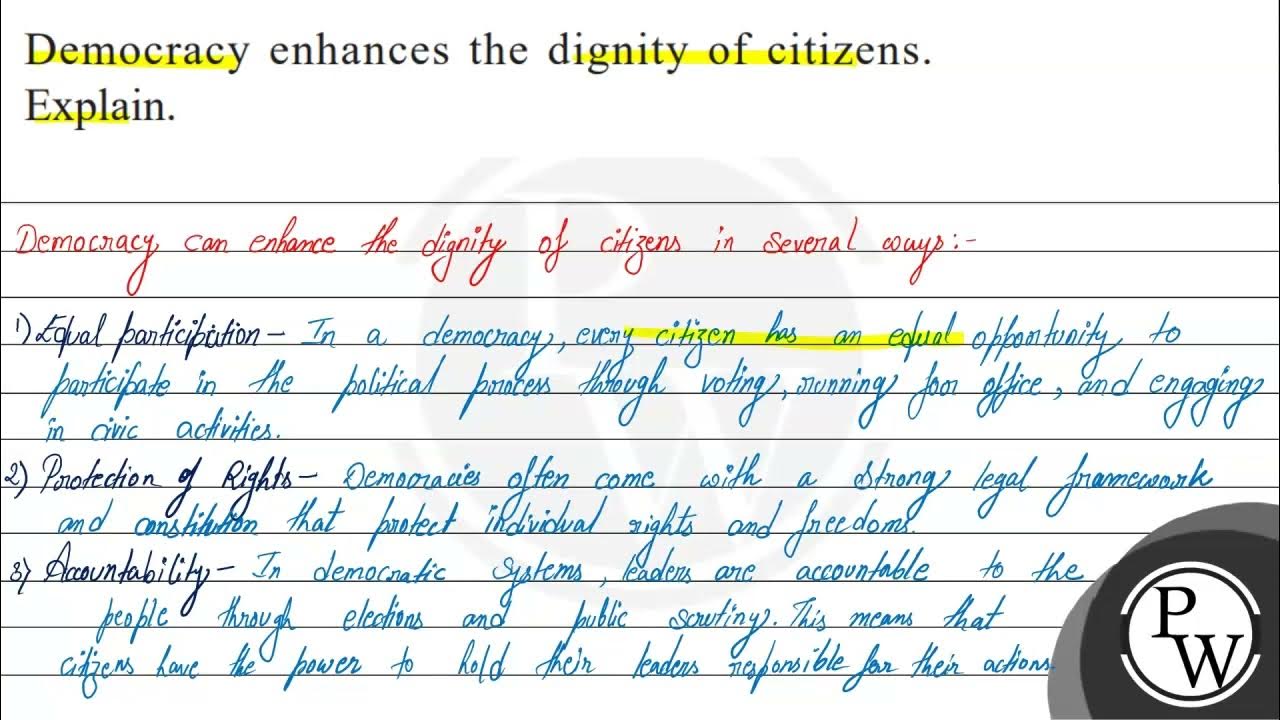 Democracy enhances the dignity of citizens.
Explain.
Democracy can enhance the dignity of citizens in several ways:-
1) Equal participation - In a democracy, every citizen has an equal opportunity to
participate in the political process through voting, running for office, and engaging
in civic activities.
2) Protection of Rights - Democracies often come with a strong legal framework
and constitution that protect individual rights and freedoms.
3) Accountability - In democratic systems, leaders are accountable to the
people through elections and public scrutiny. This means that
citizens have the power to hold their leaders responsible for their actions.
PW
PW